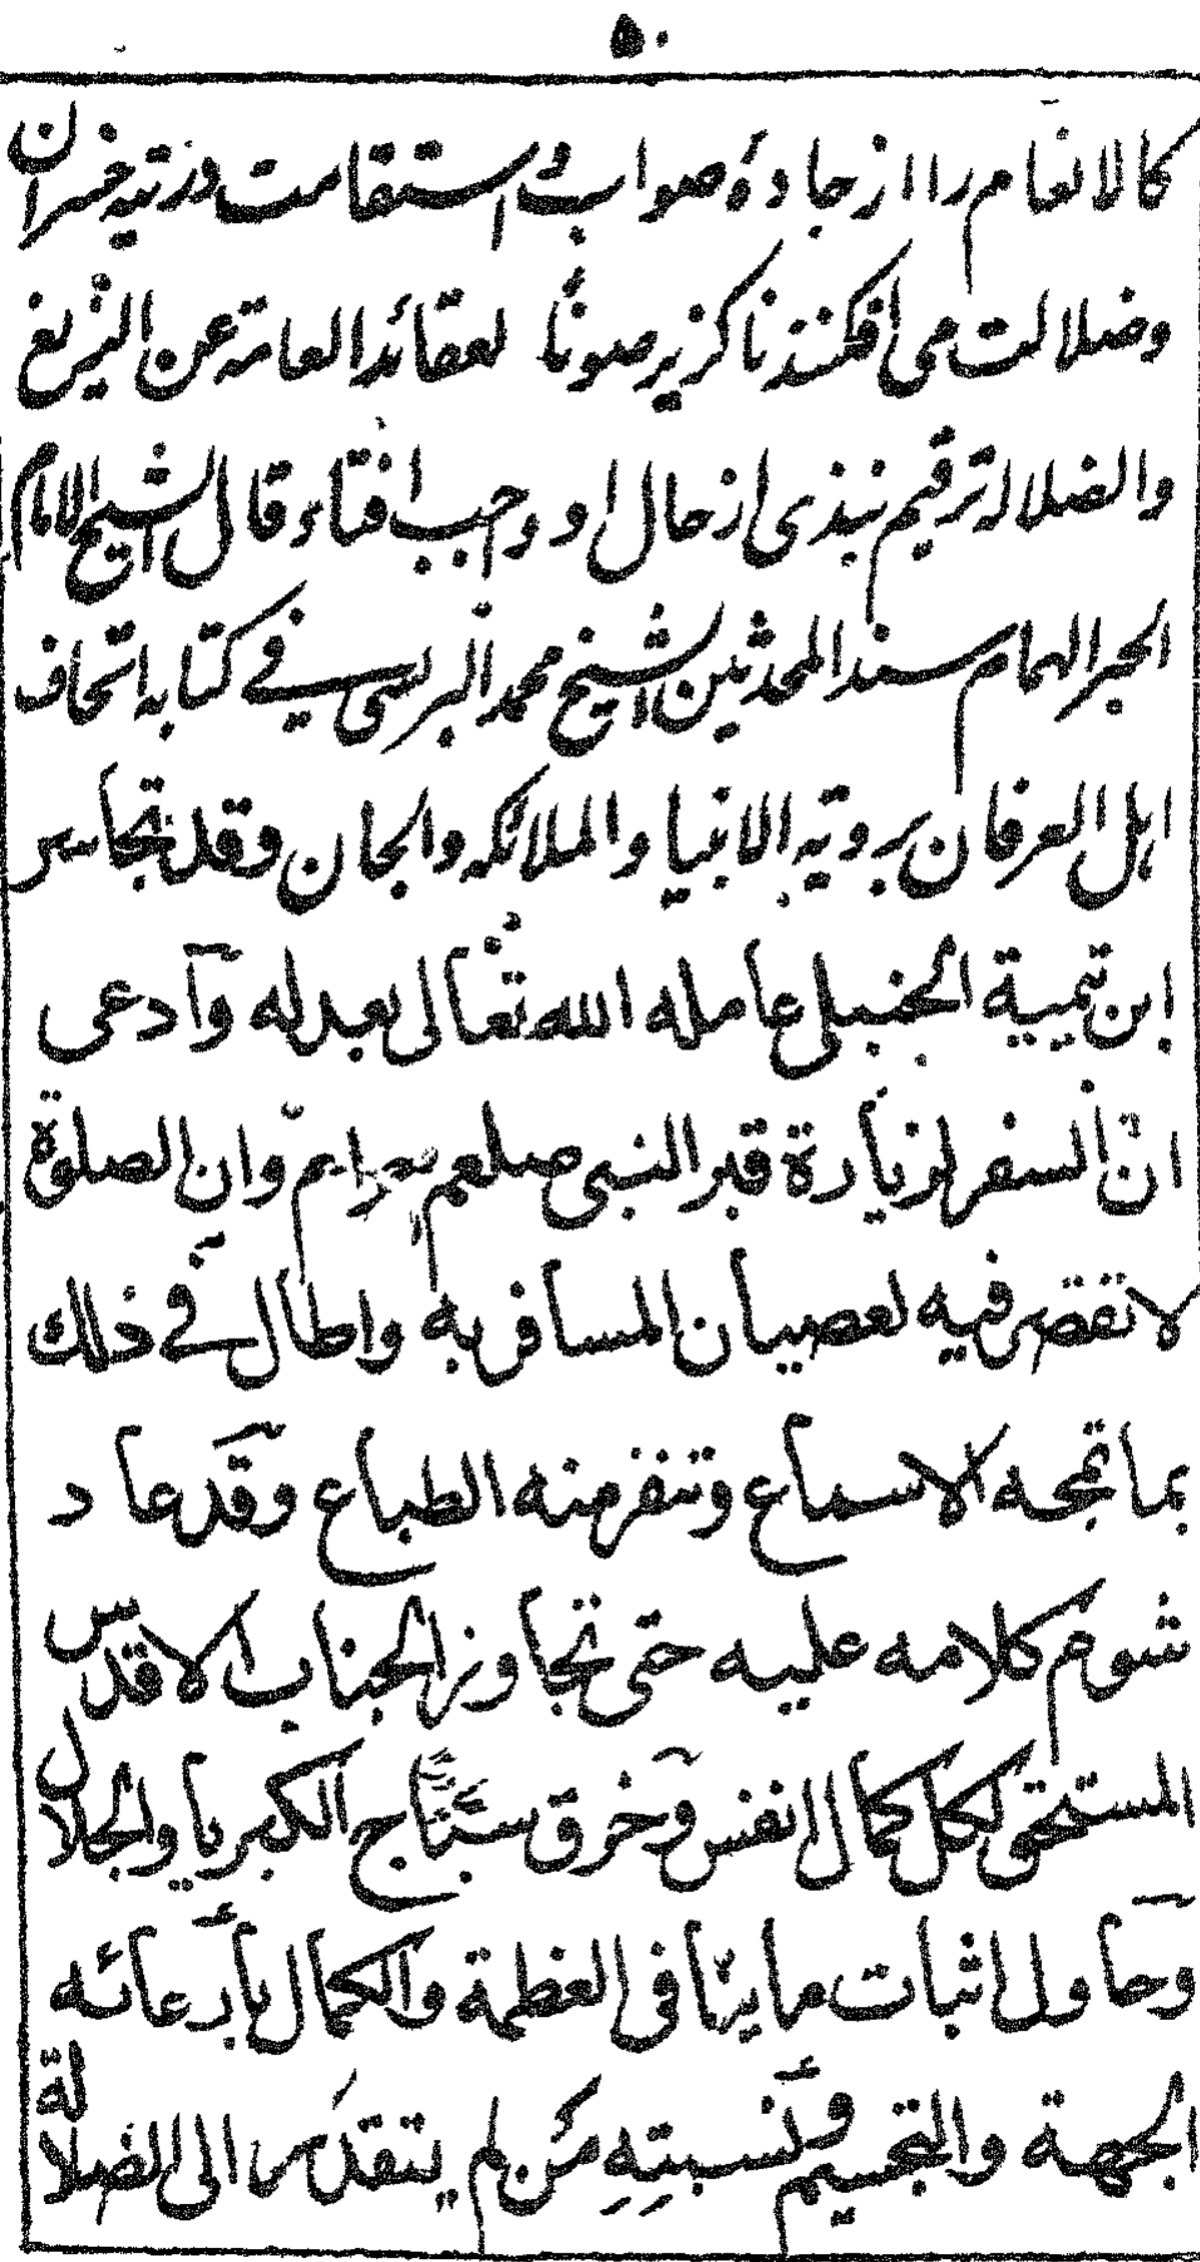 ۵۰
کالانعام را از جادهٔ صواب و استقامت در تیه خسران
و ضلالت می افکنند ناگزیر صونًا لعقائد العامه عن الزیغ
والضلاله ترقیم نبذی از حال او و جب افتاء و قال الشیخ الامام
الحبر الهمام سند المحدثین الشیخ محمد البرلسی فی کتابه اتحاف
اهل العرفان برویه الانبیا والملائکه والجان وقد تجاسر
ابن تیمیة الحنبلی عامله الله تعالی بعدله وادعی
ان السفر لزیارة قبر النبی صلعم حرام وان الصلوة
لا تقصر فیه لعصیان المسافر به واطال فی ذلك
بما تمجه الاسماع وتنفر منه الطباع وقد عاد
شوم کلامه علیه حتی تجاوز الجناب الاقدس
المستحق لکل کمال انفس وخرق الکبریا والجلال
وحاول اثبات ما ینافی العظمة والکمال بادعائه
الجهة والتجسیم ونسبته من لم یتقد الی الضلالة